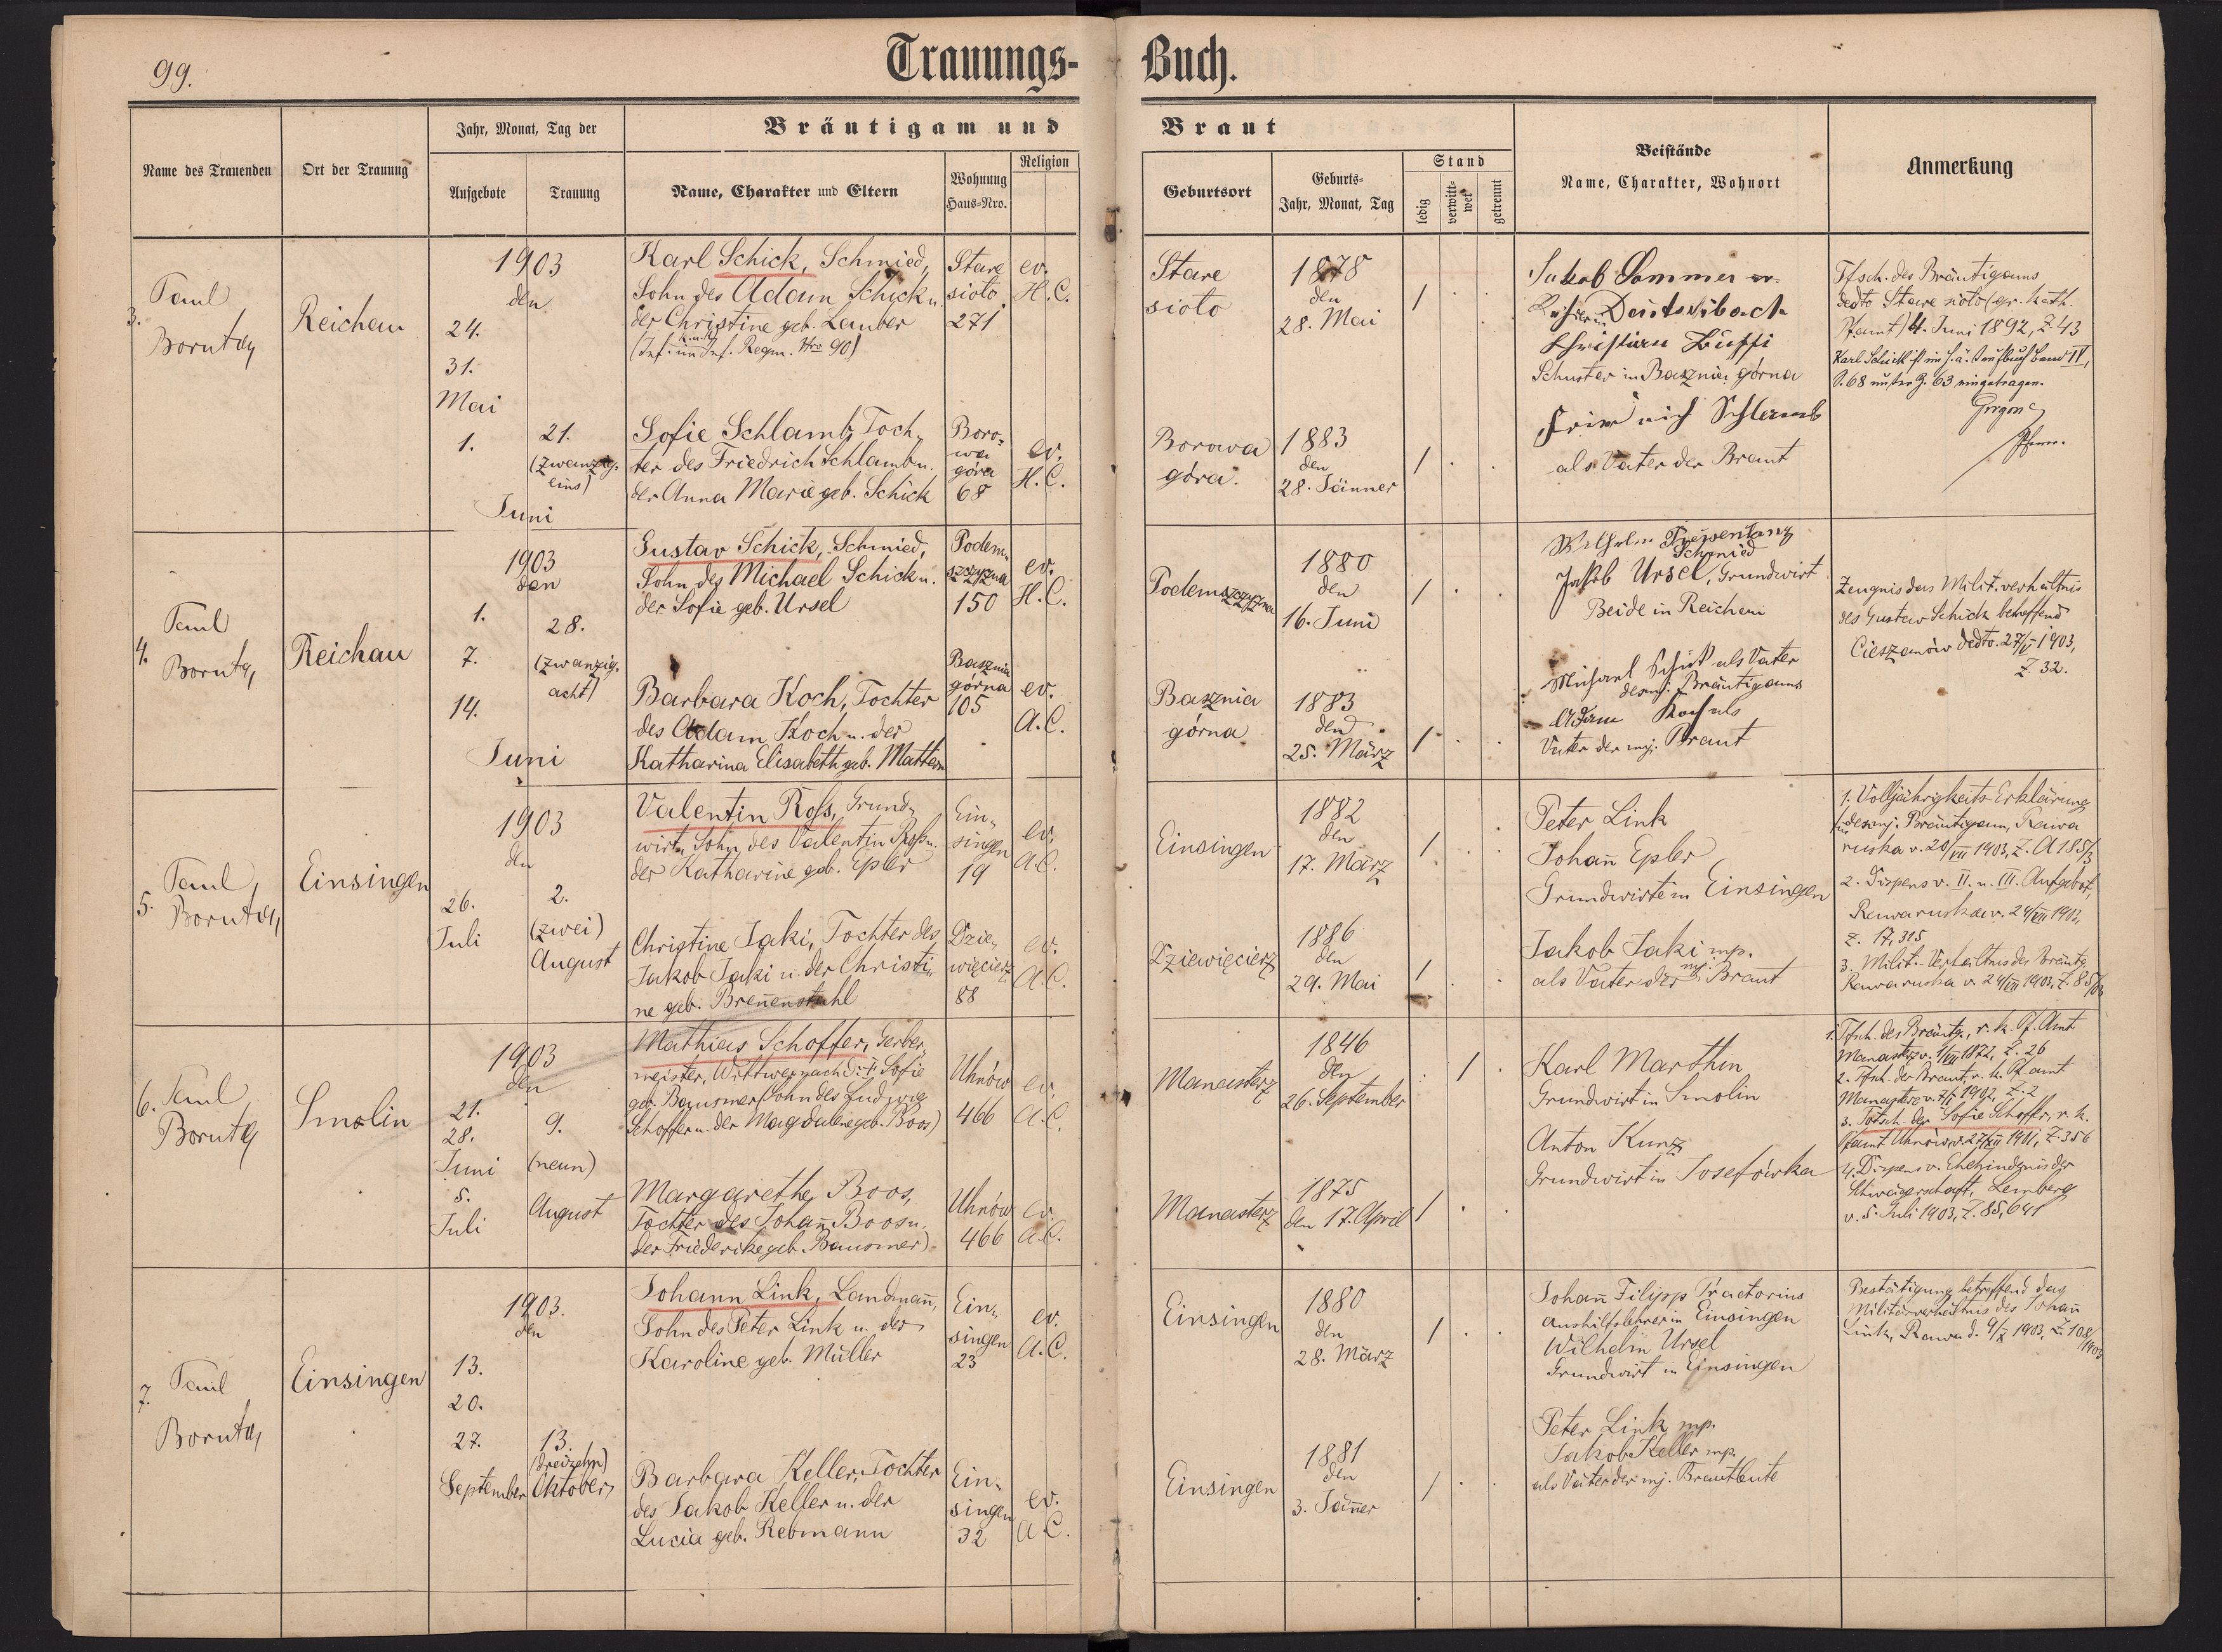 99.
Trauungs-
Buch.
Name des Trauenden
Ort der Trauung
Jahr, Monat, Tag der
Aufgebote
Trauung
Bräutigam und
Name, Charakter und Eltern
Wohnung
Haus-Nro.
Religion
Braut
Geburtsort
Geburts-
Jahr, Monat, Tag
Stand
ledig
verwitt-
wet
getrennt
Beistände
Name, Charakter, Wohnort
Anmerkung
3. Paul
Borutta
Reichau
1903
den
24.
31.
Mai
1.
21.
(zwanzig-
eins)
Juni
Karl Schick, Schmied,
Sohn des Adam Schick u.
der Christine geb. Lauber
Regm. Nro 90)
Stare
sioło
271
ev.
H. C.
Sofie Schlamb, Toch-
ter des Friedrich Schlamb u.
der Anna Marie geb. Schick
Boro-
wa
góra
68
ev.
H. C.
Stare
sioło
1878
den
28. Mai
/
Borowa
góra.
1883
den
28. Jänner
/
Jakob Sommer
Deutschbach
Christian
Schuster in Basznia górna
Schlamb
als Vater der Braut
Tfsch. des Bräutigams
dedto Stare sioło (gr. kath.
Pfamt) 4. Juni 1892, Z. 43
Karl Schick ist im h. ä. Taufbuch Band IV,
S. 68 unter Z. 63 eingetragen.
Pfarrer.
4. Paul
Borutta
Reichau
1903
den
1.
7.
14.
28.
(zwanzig-
acht)
Juni
Gustav Schick, Schmied,
Sohn des Michael Schick u.
der Sofie geb. Ursel
Podem-
szczyzna
150
ev.
H. C.
Barbara Koch, Tochter
des Adam Koch u. der
Katharina Elisabeth geb. Mattern
Basznia
górna
105
ev.
A. C.
Podemszczyzna
1880
den
16. Juni
/
Basznia
górna
1883
den
25. März
/
Wilhelm
Schmied
Jakob Ursel, Grundwirt
Beide in Reichau
Michael Schick als Vater
des mj. Bräutigams
Adam Koch als
Vater der mj. Braut
Zeugnis das Milit. verhältnis
des Gustav Schick betreffend
Cieszanów dedto. 27/V 1903,
Z. 32.
5. Paul
Borutta
Einsingen
1903
den
26.
Juli
2.
(zwei)
August
Valentin Roß, Grund-
wirt, Sohn des Valentin Roß u.
der Katharine geb. Epler
Ein-
singen
19
ev.
A. C.
Christine Jaki, Tochter des
Jakob Jaki u. der Christi-
ne geb. Breñenstuhl
Dzie-
więcierz
88
ev.
A. C.
Einsingen
1882
den
17. März
/
Dziewięcierz
1886
den
29. Mai
/
Peter Link
Johañ Epler
Grundwirte in Einsingen
Jakob Jaki mp.
als Vater der mj. Braut
1. Volljährigkeits-Erklärung
für den mj. Bräutigam, Rawa
ruska v. 20/VII 1903, Z. A 185/3
2. Dispens v. II. u. III. Aufgebot,
Rawaruska v. 24/VII 1903,
Z. 17,315
3. Milit.-Verhältnis des Bräutg.
Rawaruska v. 24/VII 1903, Z. 85/03
6. Paul
Borutta
Smolin
1903
den
21.
28.
Juni
5.
Juli
9.
(neun)
August
Mathias Schoffer, Gerber-
meister, Wittwer nach d. † Sofie
geb. Bausmer (Sohn des Ludwig
Schoffer u. der Magdalene geb. Boos)
Uhnów
466
ev.
A. C.
Margarethe Boos,
Tochter des Johañ Boos u.
der Friederike geb. Bausmer)
Uhnów
466
ev.
A. C.
Manasterz
1846
den
26. September
/
Manasterz
1875
den 17. April
/
Karl Marthin
Grundwirt in Smolin
Anton Kunz
Grundwirt in Josefówka
1. Tfsch. des Bräutg., r. k. Pf. Amt
Manasterz v. 1/VII 1872, Z. 26
2. Tfsch. der Braut, r. k. Pfamt
1902, Z. 2
3. Totsch. der Sofie Schoffer, r. k.
Pfamt Uhnów v. 27/XII 1901, Z. 356
4. Dispens v. Ehehindernis der
Schwägerschaft, Lemberg
v. 5. Juli 1903, Z. 85,641
7. Paul
Borutta
Einsingen
1903.
den
13.
20.
27.
September
13.
(dreizehn)
Oktober
Johann Link, Landmañ,
Sohn des Peter Link u. der
Karoline geb. Müller
Ein-
singen
23
ev.
A. C.
Barbara Keller, Tochter
des Jakob Keller u. der
Lucia geb. Rebmann
Ein-
singen
32
ev.
A. C.
Einsingen
1880
den
28. März
/
Einsingen
1881
den
3. Jäñer
/
Johañ Filipp Praetorius
Aushilfslehrer in Einsingen
Wilhelm Ursel
Grundwirt in Einsingen
Peter Link mp.
Jakob Keller mp.
als Väter der mj. Brautleute
Bestätigung betreffend das
Militärverhältnis des Johañ
Link, Rawa d. 9/X 1903, Z. 108/1903